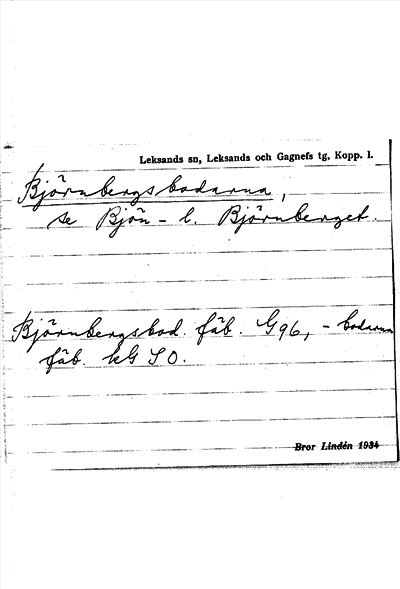 Leksands sn, Leksands och Gagnefs tg, Kopp. l.
Björnbergsbodarna,
se Bjön- l. Björnberget.
Björnbergsbod. fäb. G96, - bodarna
fäb. kG SO.
Bror Lindén 1934